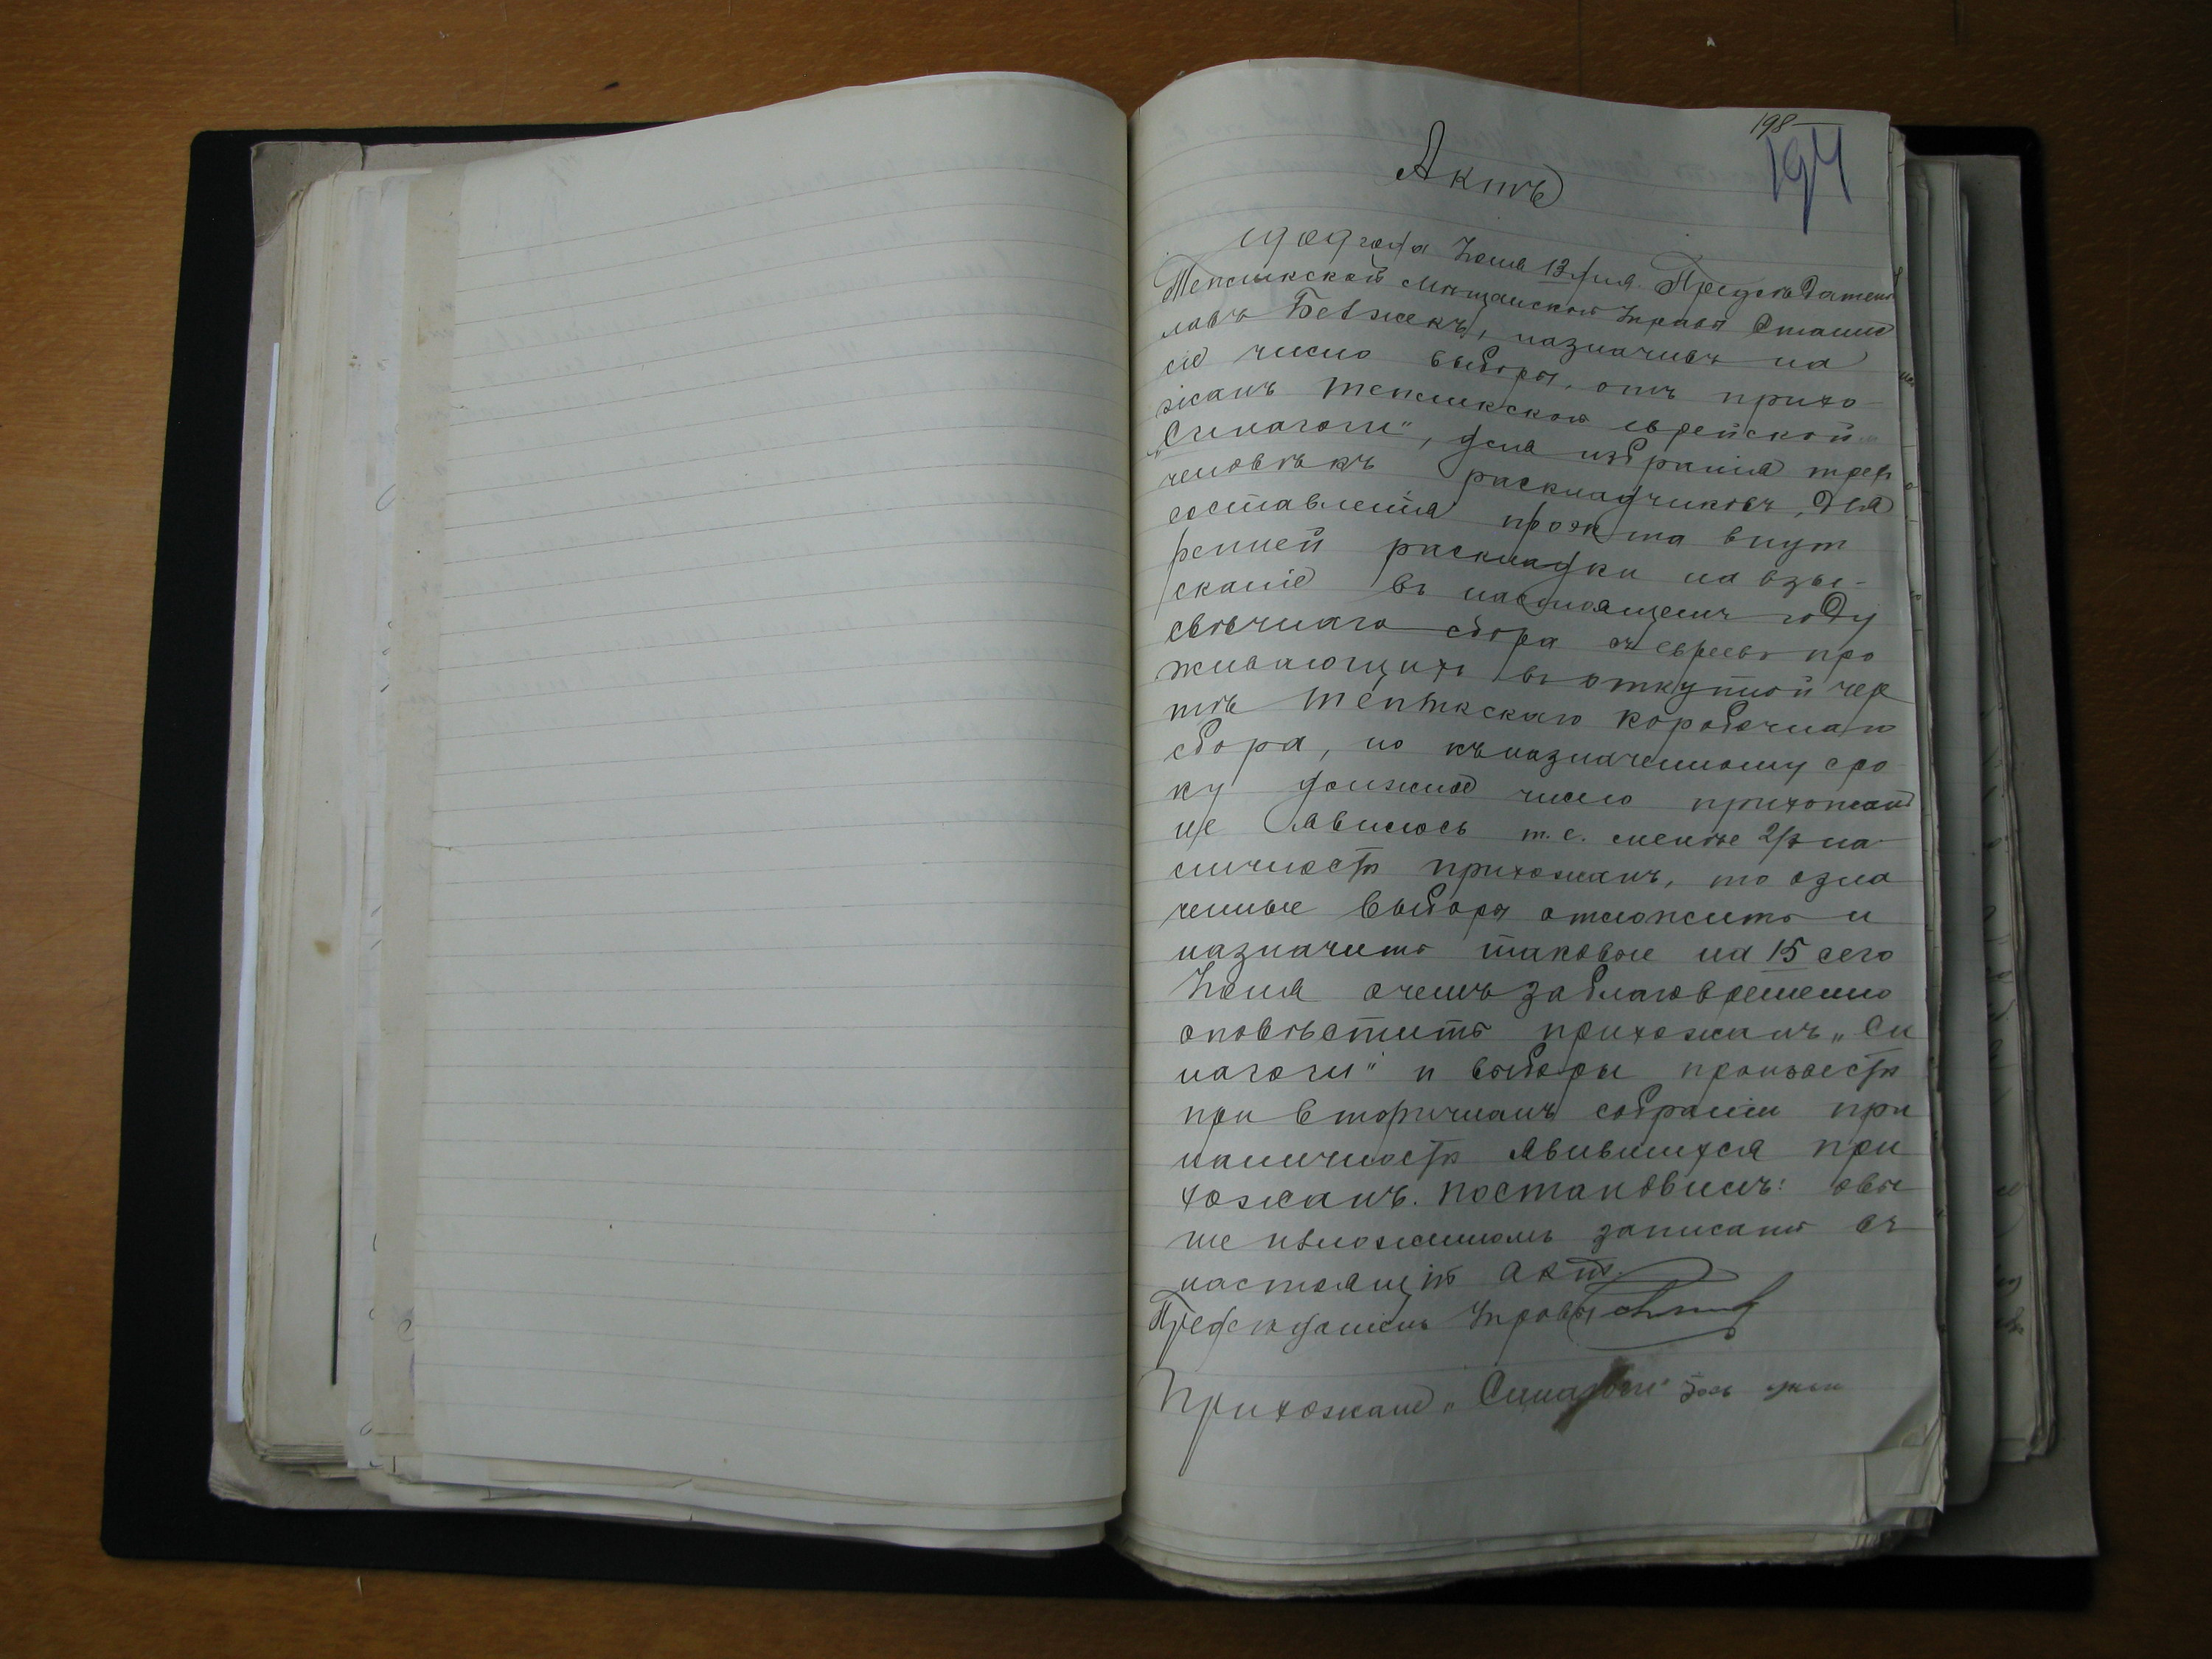 198
194
Актъ
года Іюня 13 дня. Председатель
Тепликской Мѣщанской Управы Станис
лавъ назначивъ на
сіе число выборы, отъ прихо-
жанъ Тепликской еврейской
„Синагоги", для избранія трех
человѣкъ раскладчиковъ, для
составленія проэкта внут
ренней раскладки на взы-
сканіе въ настоящемъ году
свѣчнаго сбора съ евреевъ про
живающихъ въ откупной чер
тѣ Тепликскаго коробочнаго
сбора, но къ назначенному сро
ку должное число прихожанъ
не явилось т.е. менѣе 2/3 на
личности прихожанъ, то озна
ченные выборы отложить и
назначить таковые на 15 сего
Іюня о чемъ заблаговременно
оповѣстить прихожанъ „Си
нагоги" и выборы произвести
при вторичномъ собраніи при
наличности явившихся при
хожанъ. Постановилъ: о вы
ше изложенномъ записать въ
настоящій актъ.
Председатель Управы
Прихожане „Синагоги"